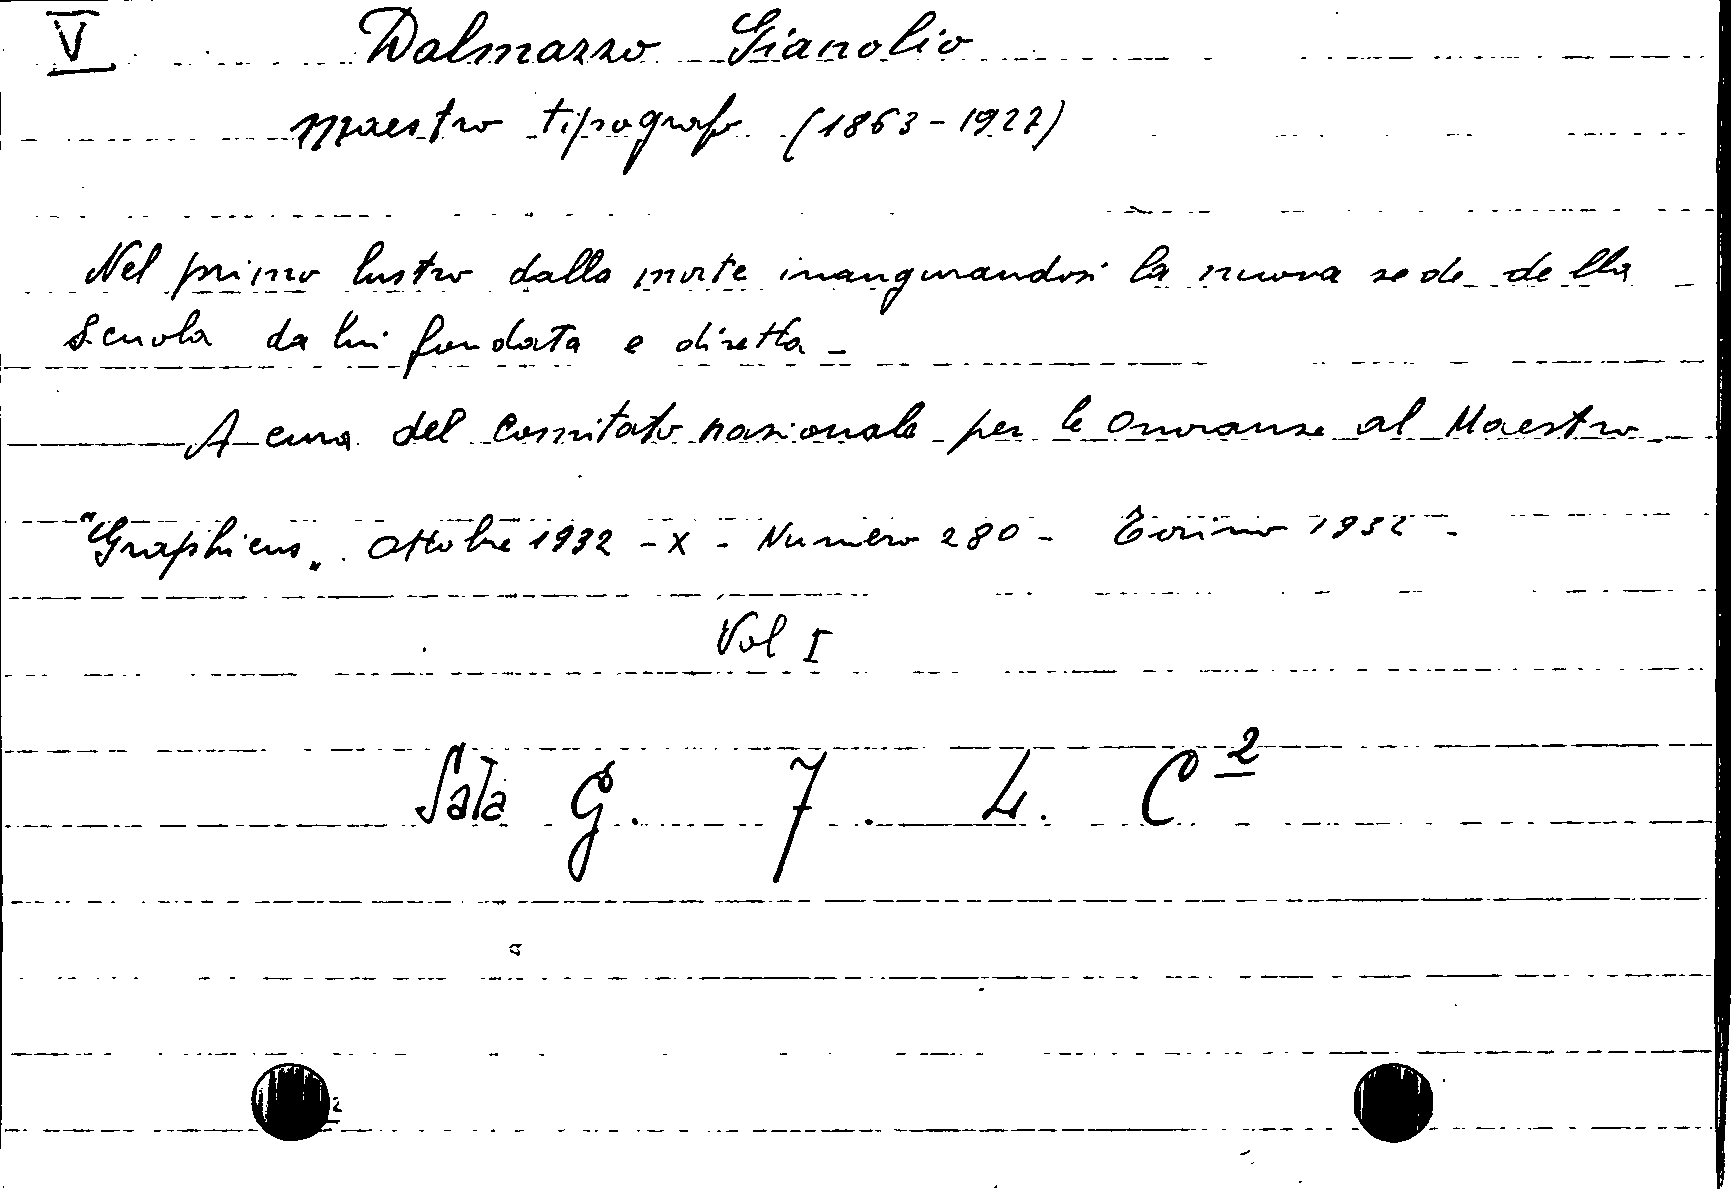 V Dalmazzo Gianolio
Maestro tipografo (1863-1927)
Nel primo lustro dalla morte inaugurandosi la nuova sede della
Scuola da lui fondata e diretta -
A cura del Comitato nazionale per le Onoranze al Maestro
"Graphicus". Ottobre 1932 - X - Numero 280 - Torino 1932 -
Vol I
Sala G. 7. L. C²